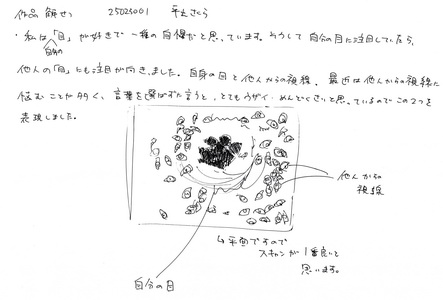 作品解せつ 25023001 平丸さくら
・私は「目」が好きで一種の自慢だと思っています。そうして自分の目に注目していたら、
自分の
他人の「目」にも注目が向きました。自身の目と他人からの視線、最近は他人からの視線に
悩むことが多く、言葉を選ばずに言うと、とてもウザイ・めんどくさいと思っているのでこの2つを
表現しました。
他人からの
視線
↳平面ですので
スキャンが1番良いと
思います。
自分の目